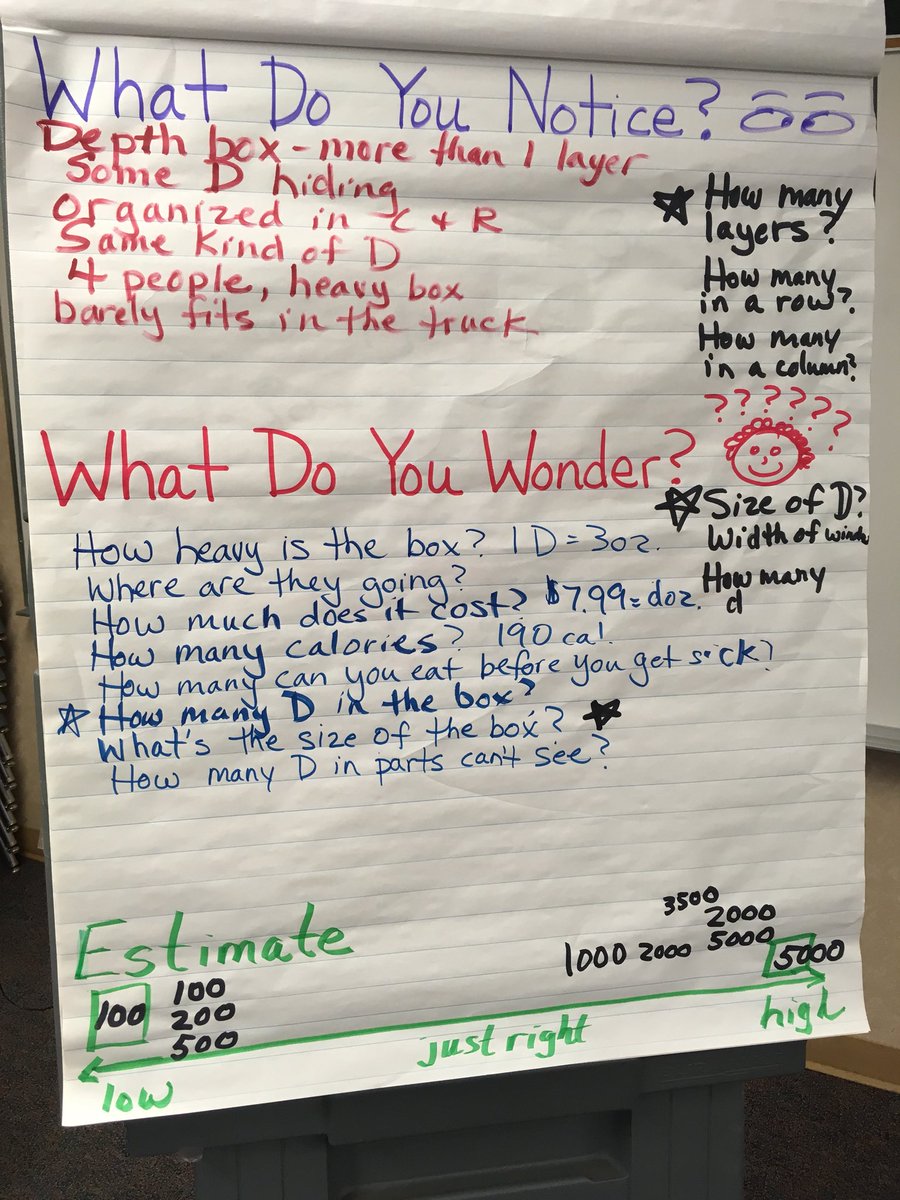 What Do You Notice?
Depth box - more than 1 layer
Some D hiding
organized in C + R
Same kind of D
4 people, heavy box
barely fits in the truck
How many
layers?
How many
in a row?
How many
in a column?
What Do You Wonder?
??????
How heavy is the box? 1 D = 3oz.
Where are they going?
How much does it cost? $7.99 = doz.
How many calories? 190 cal.
How many can you eat before you get sick?
How many D in the box?
What's the size of the box?
How many D in parts can't see?
Size of D?
Width of
How many
d
Estimate
100
100
200
500
1000 2000
3500
2000
5000
5000
low
just right
high